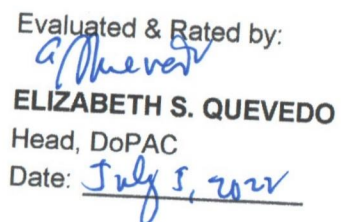 Evaluated & Rated by:
ELIZABETH S. QUEVEDO
Head, DoPAC
Date: July 5, 2022